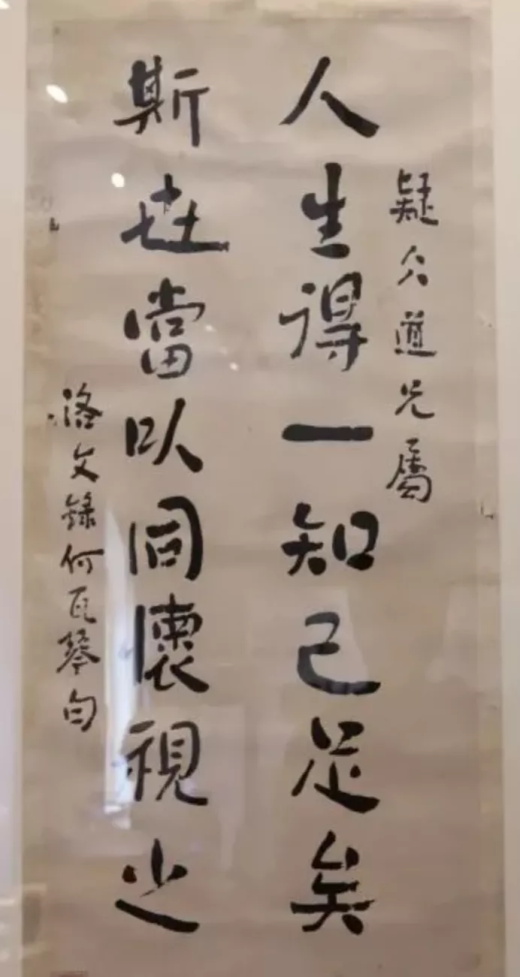 疑仌道兄属
人生得一知己足矣
斯世當以同懷視之
洛文錄何瓦琴句